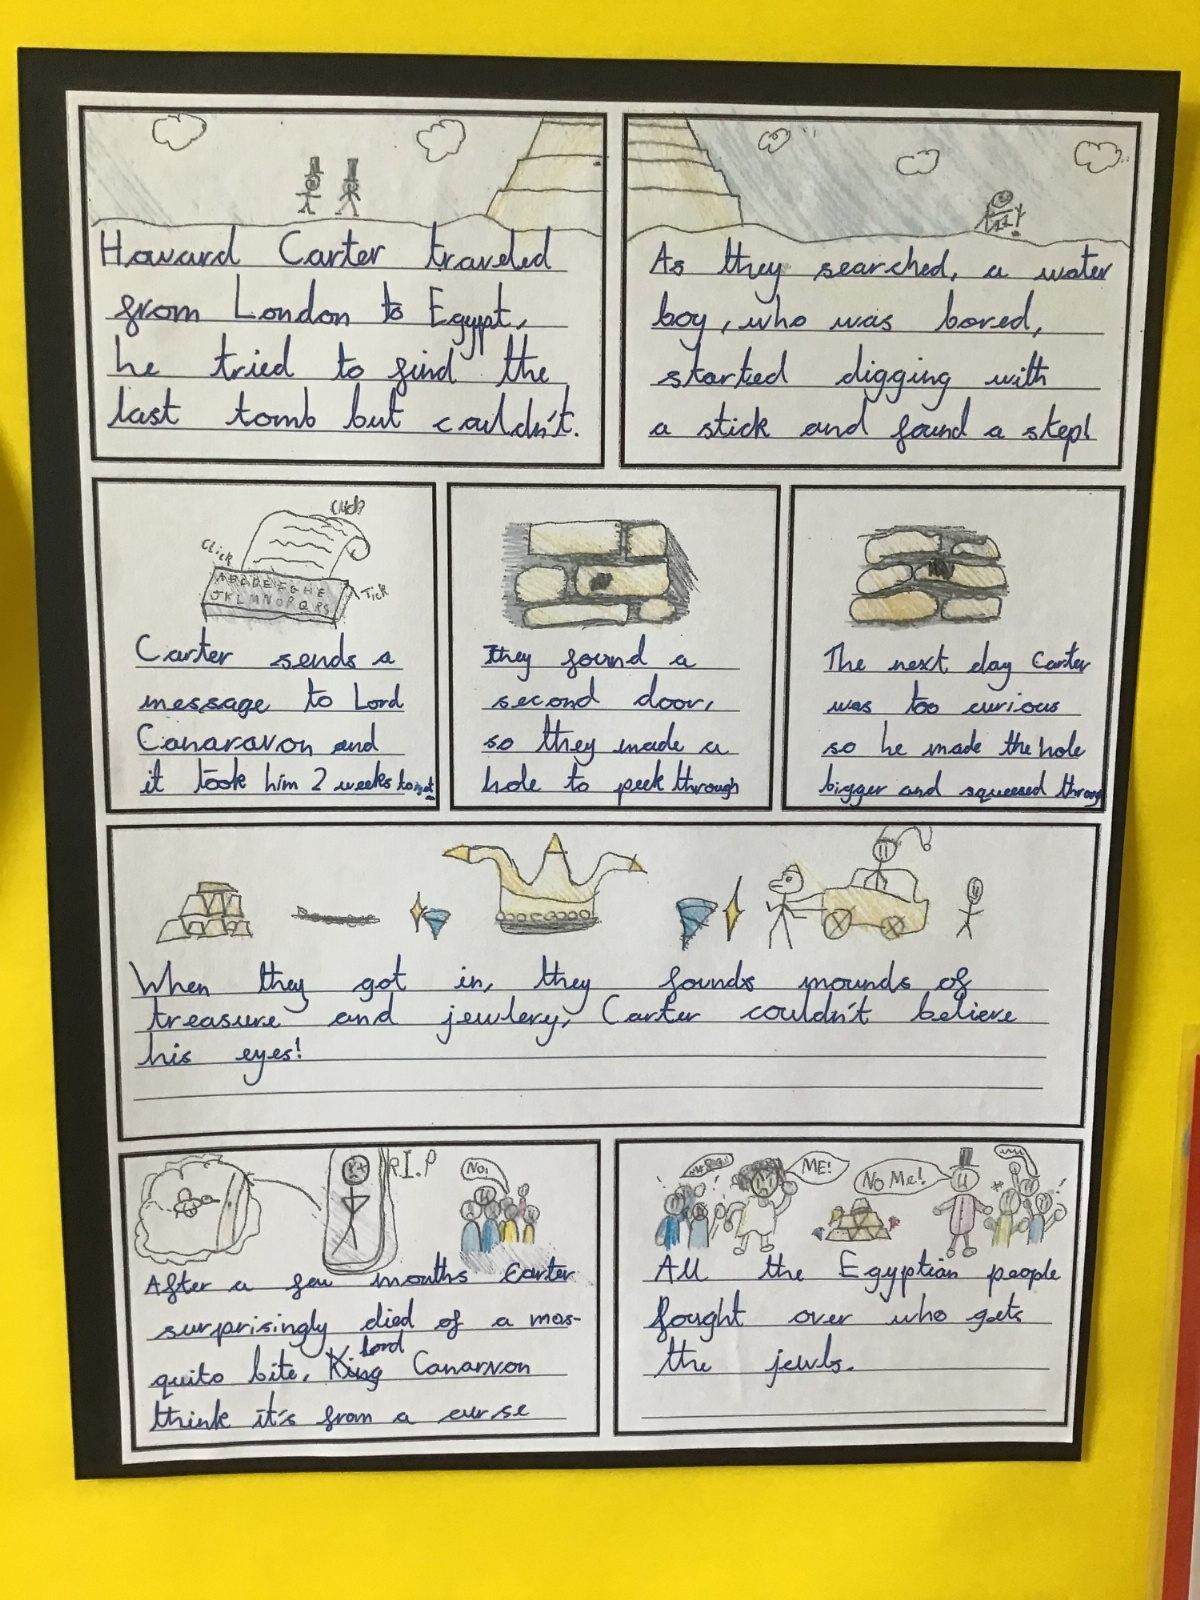 Howard Carter traveled
from London to Egypt,
he tried to find the
last tomb but couldn't.
As they searched, a water
boy, who was bored,
started digging with
a stick and found a step!
Click
Click
Tick
ABCDEFGHE
JKLMNOPQRS
Carter sends a
message to Lord
Canaravon and
it took him 2 weeks to
They found a
second door,
so they made a
hole to peek through
The next day Carter
was too curious
so he made the hole
bigger and squeesed throug
When they got in, they founds mounds of
treasure and jewlery, Carter couldn't believe
his eyes!
R.I.P
No!
After a few months Carter
surprisingly died of a mos-
quito bite, King lord Canarvon
think it's from a curse
ME!
No Me!
All the Egyptian people
fought over who gets
the jewls.